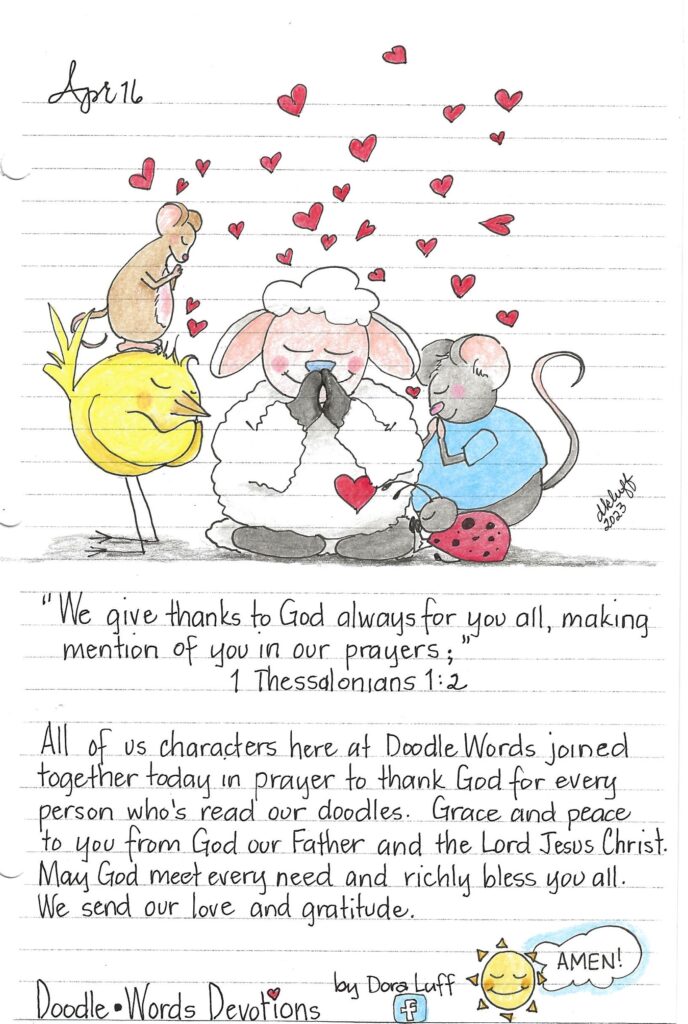 Apr 16
dkluff
2023
"We give thanks to God always for you all, making
mention of you in our prayers;"
1 Thessalonians 1:2
All of us characters here at Doodle Words joined
together today in prayer to thank God for every
person who's read our doodles. Grace and peace
to you from God our Father and the Lord Jesus Christ.
May God meet every need and richly bless you all.
We send our love and gratitude.
AMEN!
Doodle•Words Devotions by Dora Luff
f